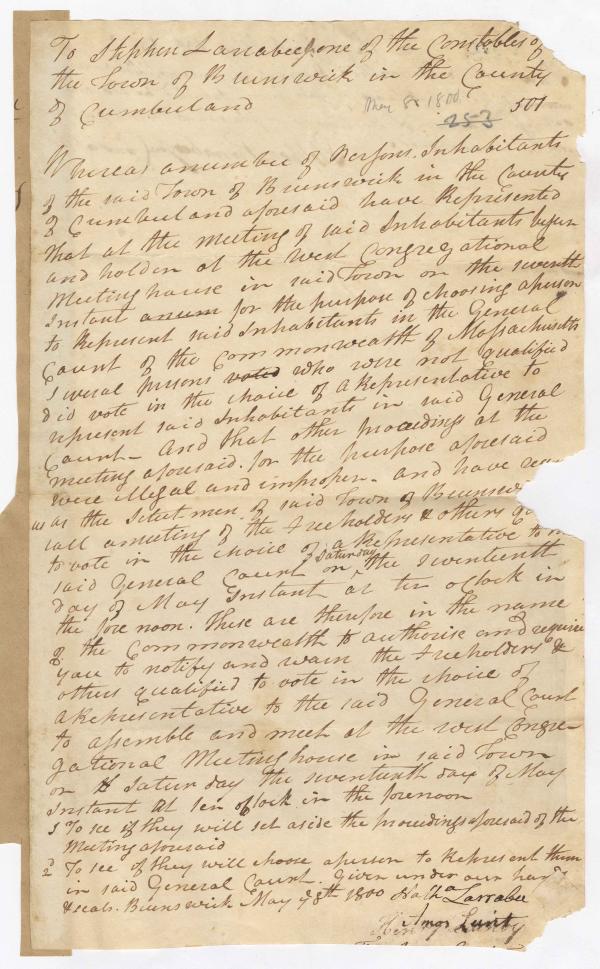 To Stephen Larrabee one of the Constables of
the Town of Brunswick in the County
of Cumberland
May 8 1800
253 501
Whereas a number of Persons Inhabitants
of the said Town of Brunswick in the County
of Cumberland aforesaid have Represented
that at the meeting of said Inhabitants begun
and holden at the West Congregational
Meeting house in said Town on the seventh
Instant for the purpose of choosing a person
to Represent said Inhabitants in the General
Court of the Commonwealth of Massachusetts
Several persons voted who were not qualified
did vote in the choice of a Representative to
represent said Inhabitants in said General
Court - And that other proceedings at the
meeting aforesaid for the purpose aforesaid
were illegal and improper - and have
us as the Selectmen of said Town of
call a meeting of the Freeholders & others
to vote in the choice of a Representative to
said General Court on Saturday the Seventeenth
day of May Instant at ten oClock in
the fore noon. These are therefore in the name
of the Commonwealth to authorise and require
you to notify and warn the Freeholders &
others qualified to vote in the choice of
a Representative to the said General Court
to assemble and meet at the west Congre-
gational Meeting house in said Town
on Saturday the seventeenth day of May
Instant at ten oClock in the forenoon
1 To see if they will set aside the proceedings aforesaid of the
Meeting aforesaid
2d To see if they will choose a person to Represent them
in said General Court. Given under our
& seals. Brunswick May 8th 1800 Nathl Larrabee
Amos Lunt